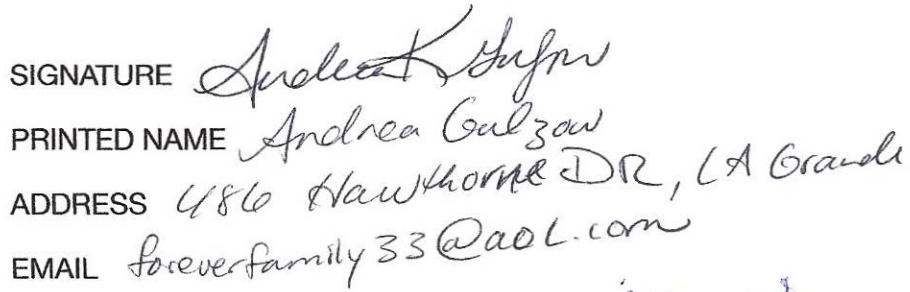 SIGNATURE Andrea K Gulzow
PRINTED NAME Andrea Gulzow
ADDRESS 486 Hawthorne DR, LA Grande
EMAIL foreverfamily33@aol.com